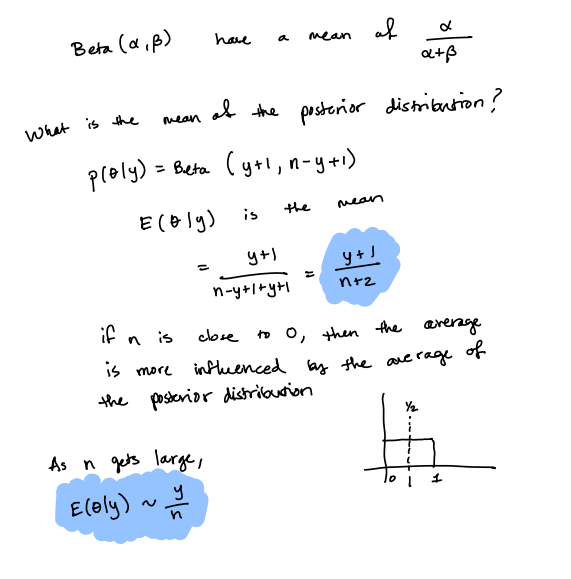 Beta (α,β) have a mean of α/(α+β)
What is the mean of the posterior distribution?
p(θ|y) = Beta (y+1, n-y+1)
E(θ|y) is the mean
= (y+1)/(n-y+1+y+1) = (y+1)/(n+2)
if n is close to 0, then the average
is more influenced by the average of
the posterior distribution
1/2
0 1
As n gets large,
E(θ|y) ~ y/n